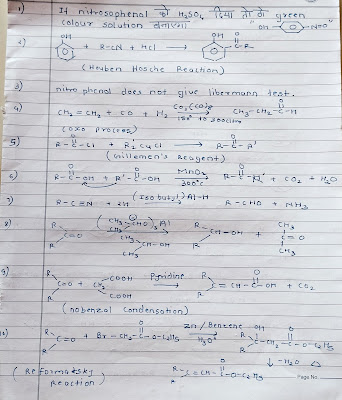 1) If nitrosophenol को H₂SO₄ दिया तो वो green
colour solution बनाएगा "OH-⌬-N=O"
2) OH + R-CN + HCl → OH C-R O
(Heuben Hosche Reaction)
3) nitro phenol does not give libermann test.
4) CH₂=CH₂ + CO + H₂ Co₂(CO)₈ → CH₃-CH₂-C-H O
(oxo process)
5) R-C-Cl + R'₂CuCl → R-C-R' O
(Gillemen's Reagent)
6) R-C-OH + R'-C-OH MnO₂ → 300°C R-C-R' + CO₂ + H₂O
7) R-C≡N + 2H (Iso butyl)₂Al-H → R-CHO + NH₃
8) R R C=O (CH₃ CH₃ CHO)₃Al CH₃ CH₃ CH-OH → R R CH-OH + CH₃ C=O CH₃
9) R R C=O + CH₂ COOH COOH Pyridine → R R C=CH-C-OH O + CO₂
(nobenzal condensation)
10) R R C=O + Br-CH₂-C-O-C₂H₅ O Zn/Benzene → H₃O⁺ R R C-CH₂-C-O-C₂H₅ OH O
↓ -H₂O △
(Reformatsky Reaction) R R C=CH-C-O-C₂H₅ O
Page No.